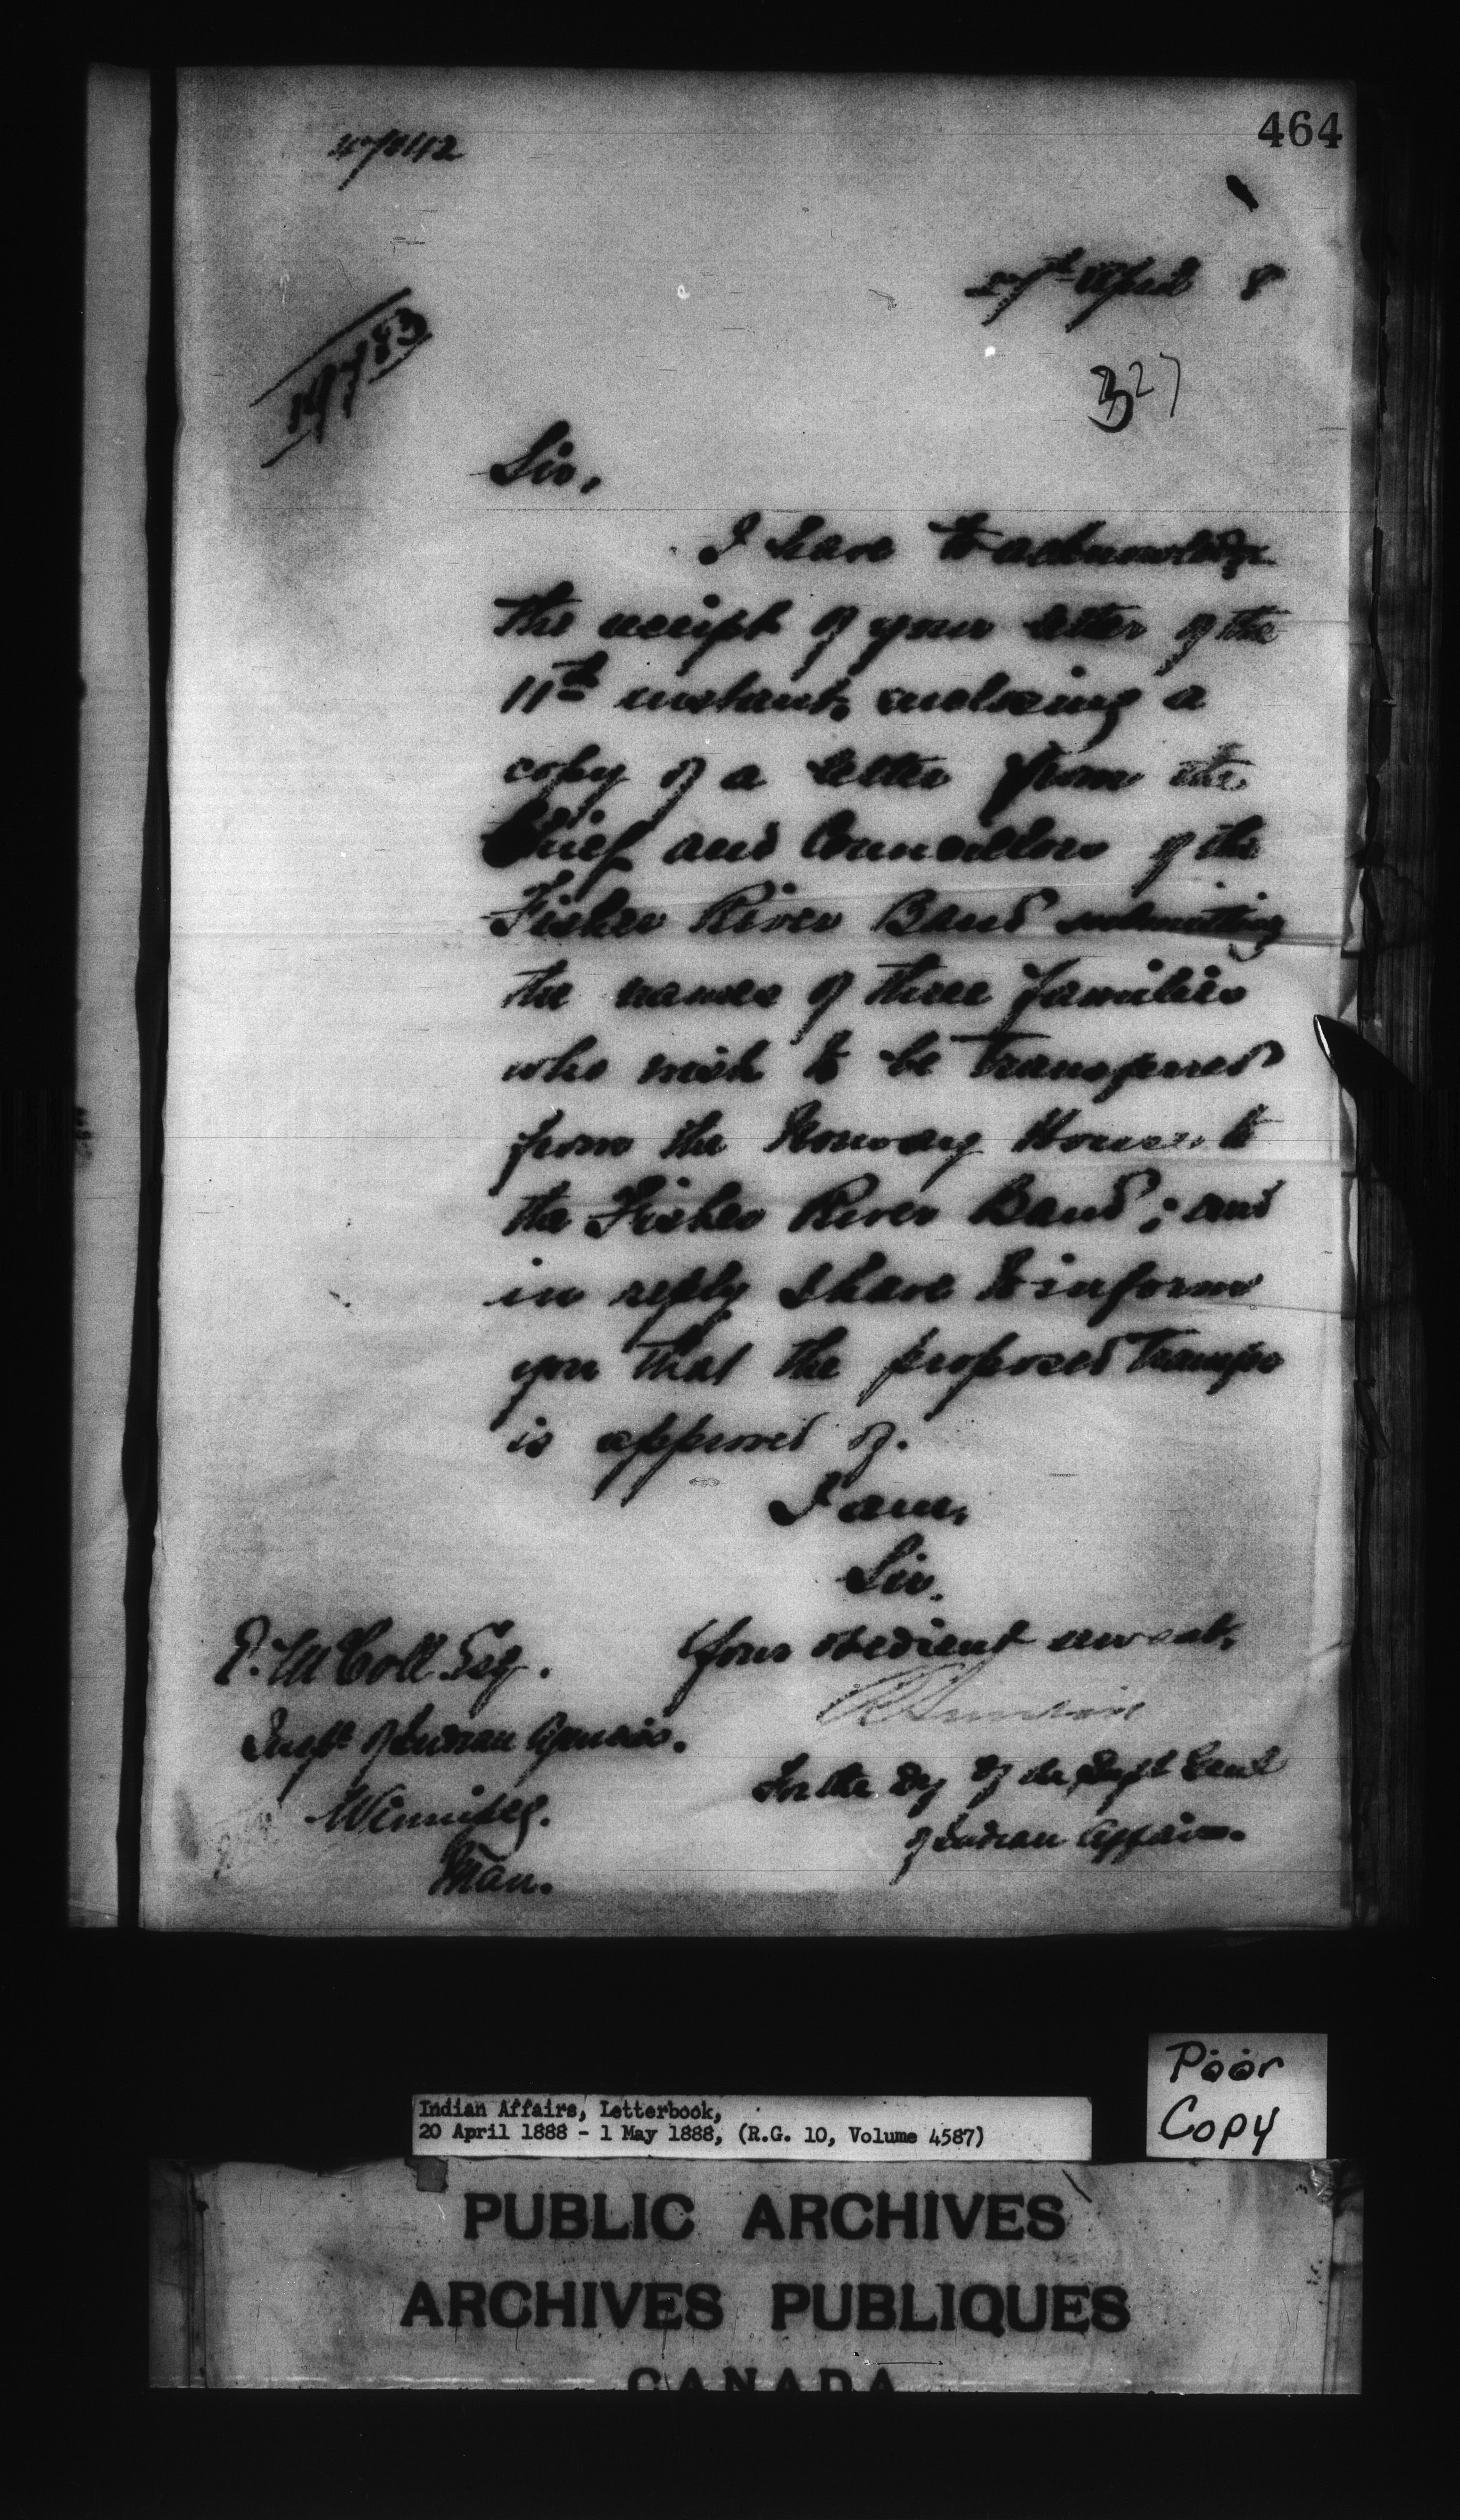 464
27th April 8
327
Sir,
I have to acknowledge
the receipt of your letter of the
11th instant, enclosing a
copy of a letter from the
Chief and Councillors of the
Fisher River Band submitting
the names of three families
who wish to be transferred
from the Norway House to
the Fisher River Band; and
in reply I have to inform
you that the proposed transfer
is approved of.
I am,
Sir,
Your obedient servant,
R Sinclair
For the Dy of the Supt Genl
of Indian Affairs.
E. McColl Esq.
Inspt of Indian Agencies.
Winnipeg.
Man.
Poor
Copy
Indian Affairs, Letterbook,
20 April 1888 - 1 May 1888, (R.G. 10, Volume 4587)
PUBLIC ARCHIVES
ARCHIVES PUBLIQUES
CANADA